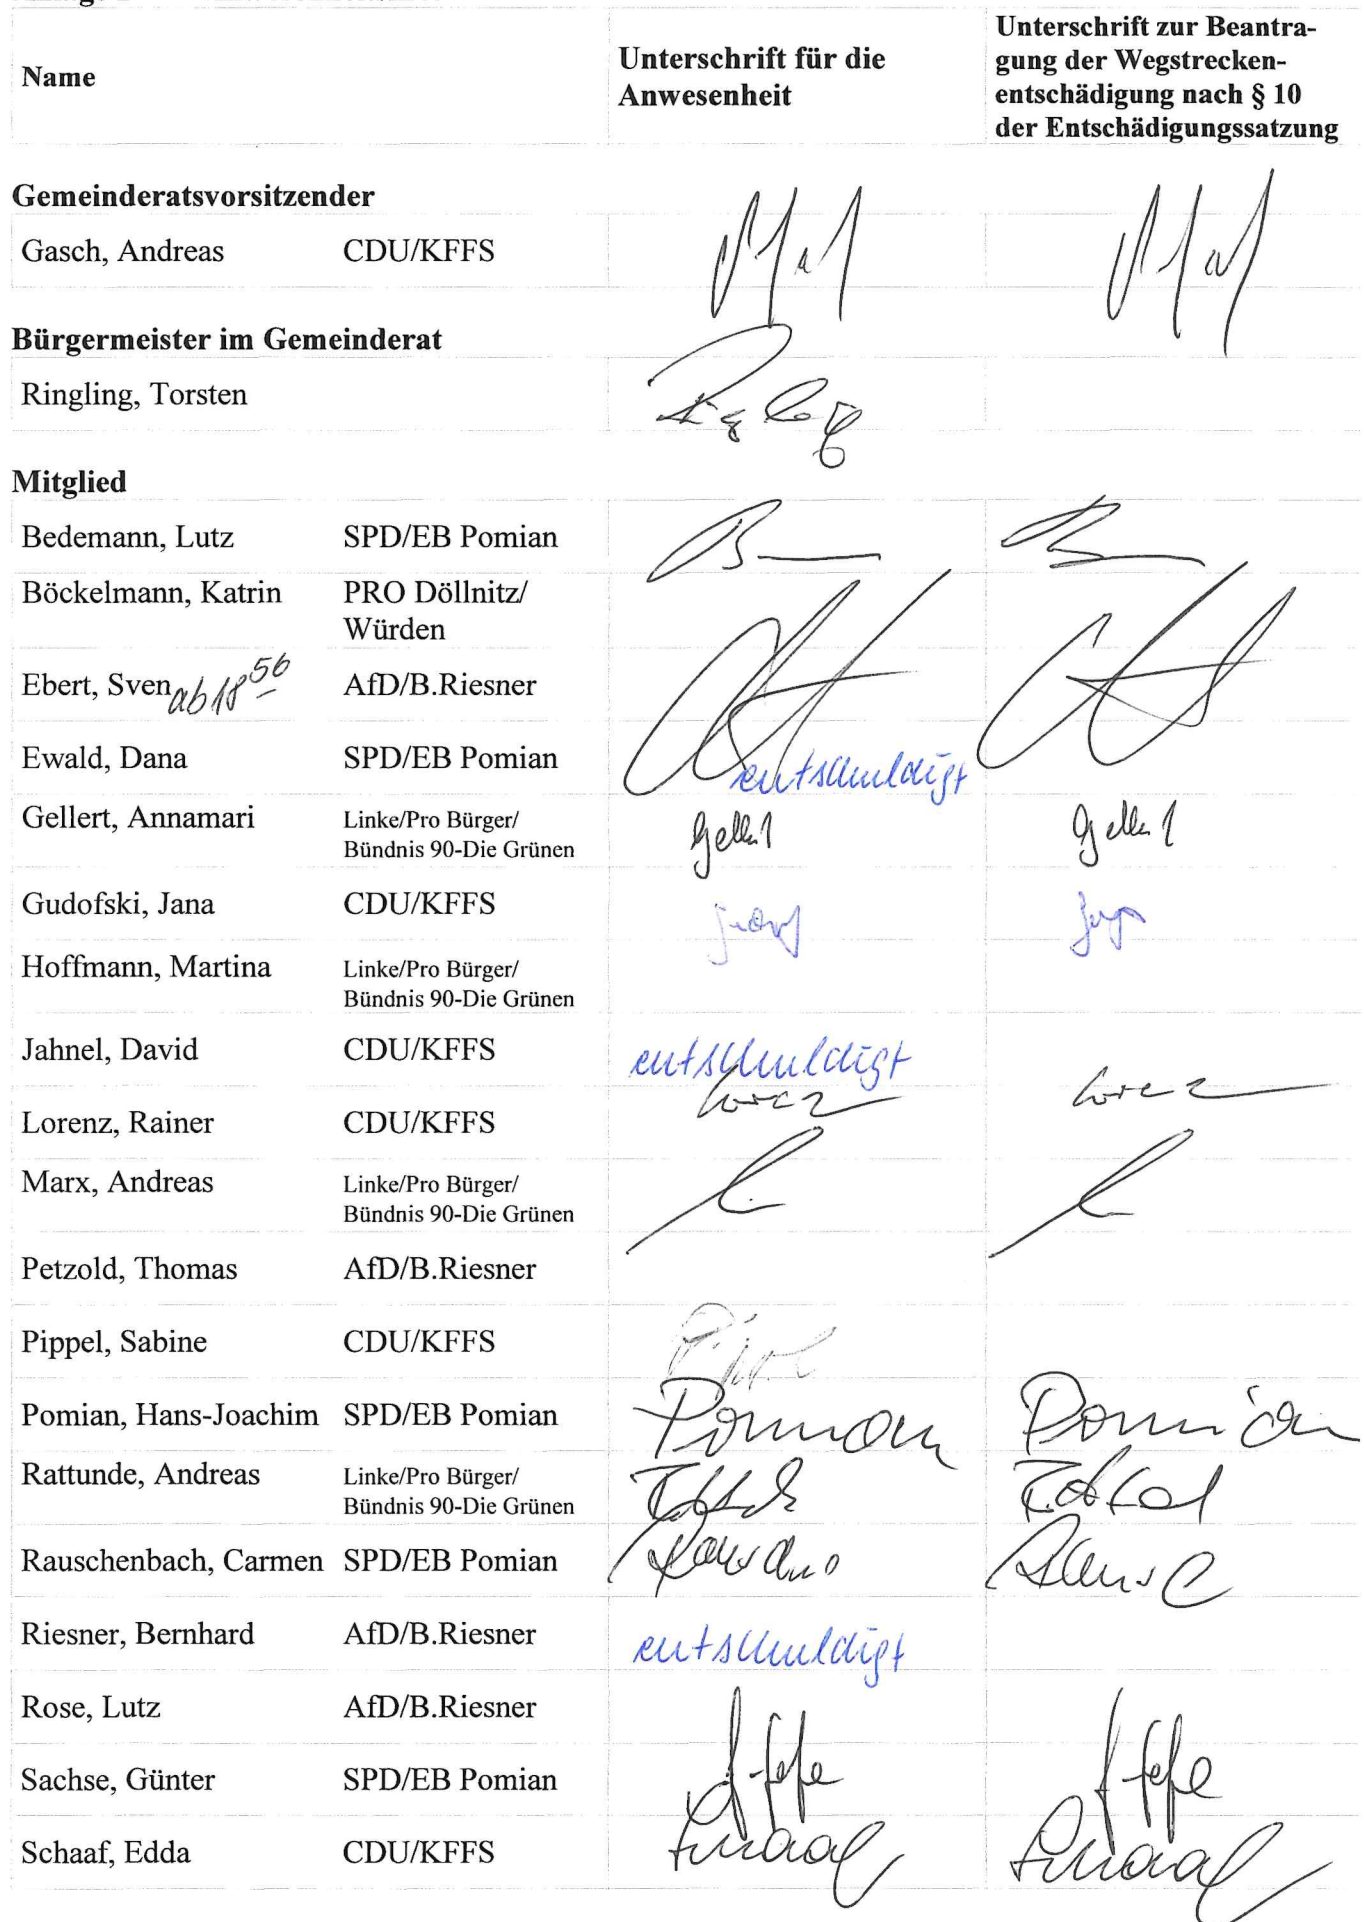 Name
Unterschrift für die
Anwesenheit
Unterschrift zur Beantra-
gung der Wegstrecken-
entschädigung nach § 10
der Entschädigungssatzung
Gemeinderatsvorsitzender
Gasch, Andreas CDU/KFFS
Bürgermeister im Gemeinderat
Ringling, Torsten
Mitglied
Bedemann, Lutz SPD/EB Pomian
Böckelmann, Katrin PRO Döllnitz/
Würden
Ebert, Sven ab 18 56 AfD/B.Riesner
Ewald, Dana SPD/EB Pomian entschuldigt
Gellert, Annamari Linke/Pro Bürger/
Bündnis 90-Die Grünen
Gudofski, Jana CDU/KFFS
Hoffmann, Martina Linke/Pro Bürger/
Bündnis 90-Die Grünen
Jahnel, David CDU/KFFS entschuldigt
Lorenz, Rainer CDU/KFFS
Marx, Andreas Linke/Pro Bürger/
Bündnis 90-Die Grünen
Petzold, Thomas AfD/B.Riesner
Pippel, Sabine CDU/KFFS
Pomian, Hans-Joachim SPD/EB Pomian Pomian Pomian
Rattunde, Andreas Linke/Pro Bürger/
Bündnis 90-Die Grünen
Rauschenbach, Carmen SPD/EB Pomian
Riesner, Bernhard AfD/B.Riesner entschuldigt
Rose, Lutz AfD/B.Riesner
Sachse, Günter SPD/EB Pomian
Schaaf, Edda CDU/KFFS